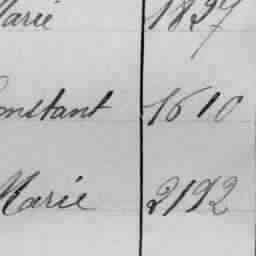 Marie 1897
Constant 1610
Marie 2192